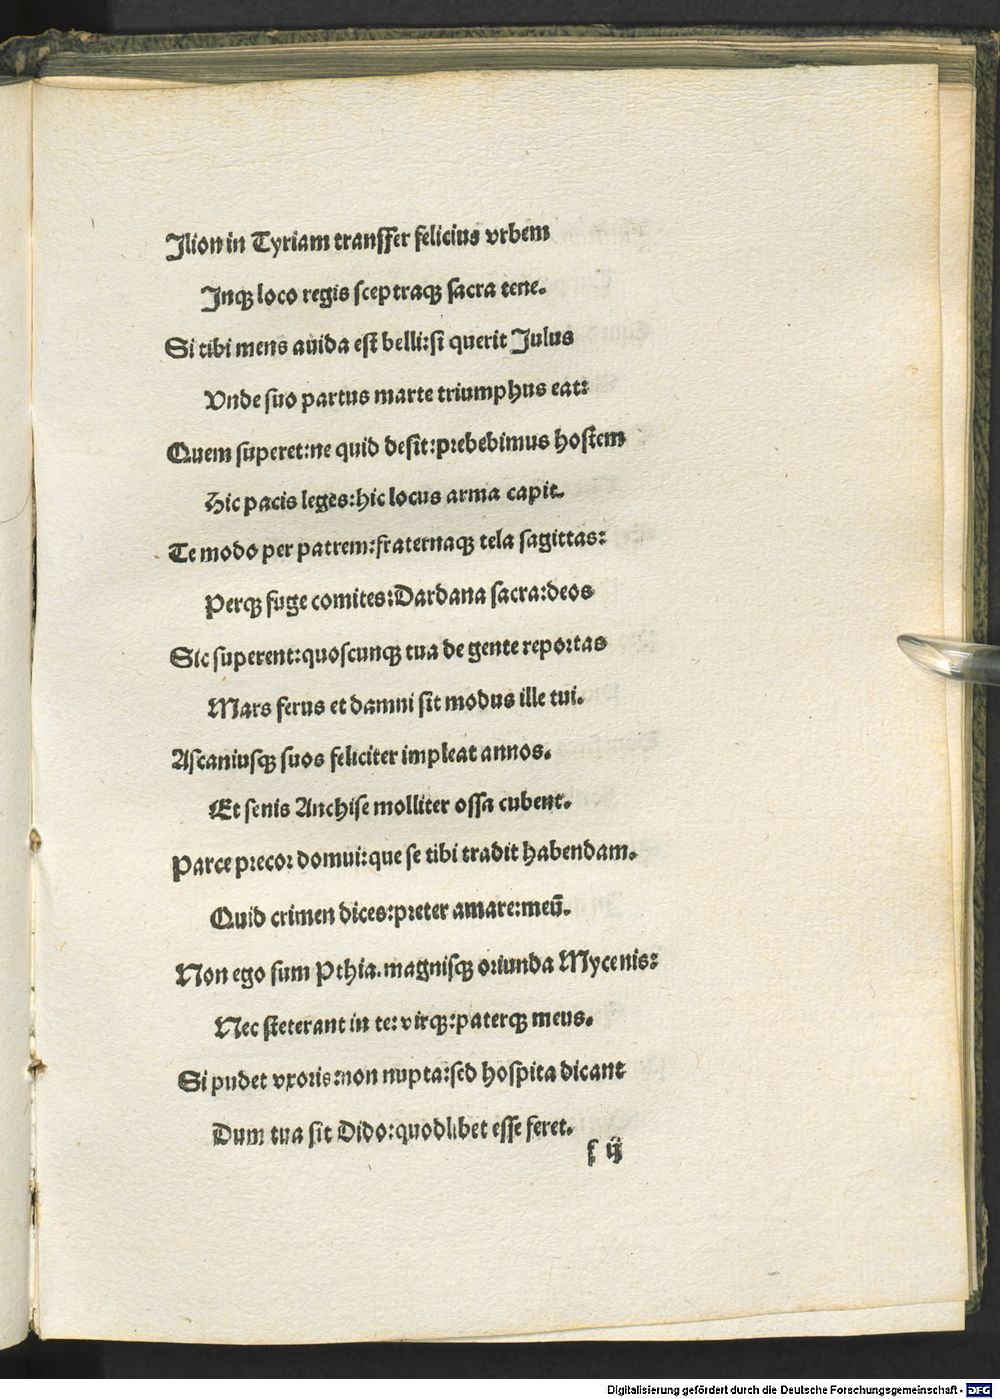 Ilion in Tyriam transfer felicius vrbem
Inqꝫ loco regis sceptraqꝫ sacra tene.
Si tibi mens auida est belli: si querit Julus
Vnde suo partus marte triumphus eat:
Quem superet: ne quid desit: prebebimus hostem
Hic pacis leges: hic locus arma capit.
Te modo per patrem: fraternaqꝫ tela sagittas:
Perqꝫ fuge comites: Dardana sacra: deos
Sic superent: quoscunqꝫ tua de gente reportas
Mars ferus et damni sit modus ille tui.
Ascaniusqꝫ suos feliciter impleat annos.
Et senis Anchise molliter ossa cubent.
Parce precor domui: que se tibi tradit habendam.
Quid crimen dices: preter amare: meū.
Non ego sum Pthia. magnisqꝫ oriunda Mycenis:
Nec steterant in te: virqꝫ: paterqꝫ meus.
Si pudet vxoris: non nupta: sed hospita dicant
Dum tua sit Dido: quodlibet esse feret.
f ij
Digitalisierung gefördert durch die Deutsche Forschungsgemeinschaft - DFG